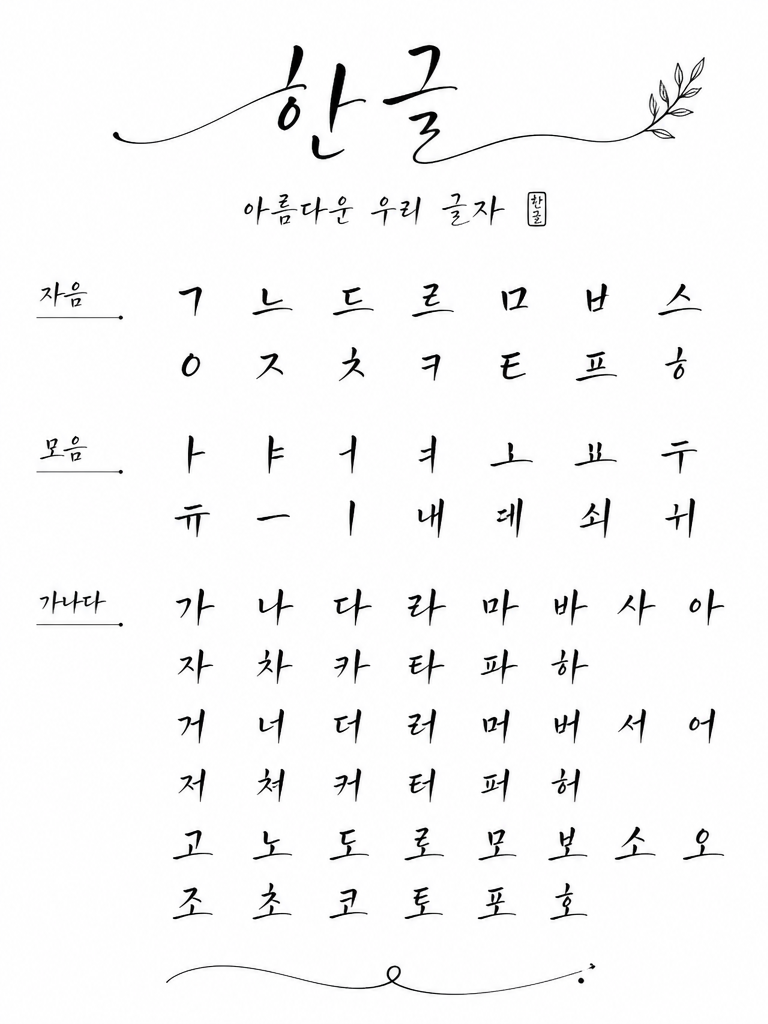 한글
아름다운 우리 글자 한글
자음 ㄱ 느 드 르 ㅁ ㅂ 스
ㅇ ㅈ ㅊ ㅋ ㅌ 프 ㅎ
모음 ㅏ ㅑ ㅓ ㅕ ㅗ ㅛ ㅜ
ㅠ ㅡ ㅣ 내 데 쇠 귀
가나다 가 나 다 라 마 바 사 아
자 차 카 타 파 하
거 너 더 러 머 버 서 어
저 쳐 커 터 퍼 허
고 노 도 로 모 보 소 오
조 초 코 토 포 호